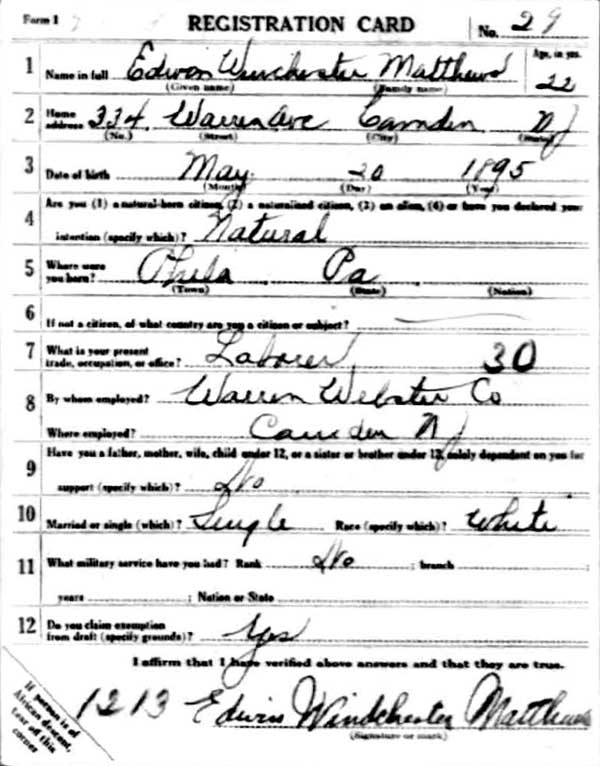 Form 1 REGISTRATION CARD No. 29
1 Name in full Edwin Winchester Matthews Age, in yrs. 22
(Given name) (Family name)
2 Home address 334 Warren Ave Camden NJ
(No.) (Street) (City) (State)
3 Date of birth May 20 1895
(Month) (Day) (Year)
4 Are you (1) a natural-born citizen, (2) a naturalized citizen, (3) an alien, (4) or have you declared your
intention (specify which)? Natural
5 Where were you born? Phila Pa
(Town) (State) (Nation)
6 If not a citizen, of what country are you a citizen or subject?
7 What is your present trade, occupation, or office? Laborer 30
8 By whom employed? Warren Webster Co
Where employed? Camden NJ
9 Have you a father, mother, wife, child under 12, or a sister or brother under 12, solely dependent on you for
support (specify which)? No
10 Married or single (which)? Single Race (specify which)? White
11 What military service have you had? Rank No ; branch ;
years ; Nation or State
12 Do you claim exemption from draft (specify grounds)? Yes
I affirm that I have verified above answers and that they are true.
1213 Edwin Windchester Matthews
(Signature or mark)
If person is of
African descent,
tear off this
corner